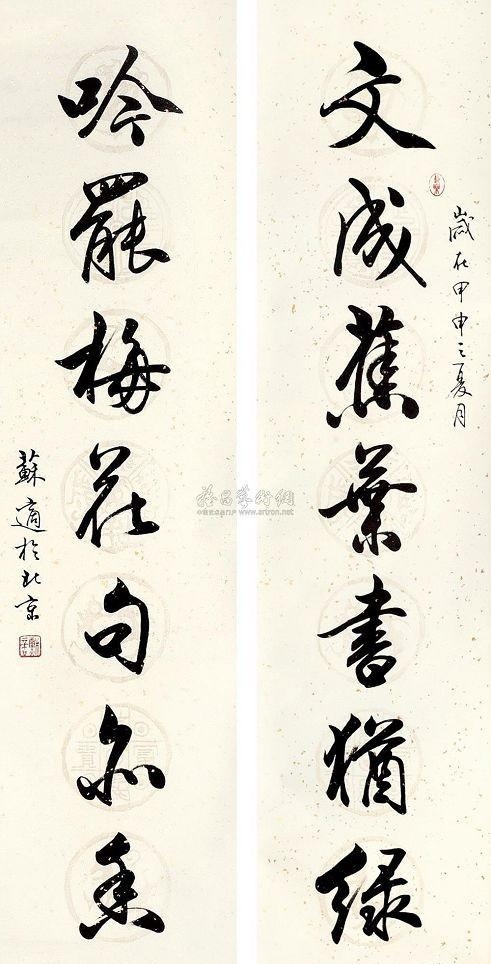 文成蕉葉書猶綠
歲在甲申之夏月
吟罷梅花句亦香
蘇適於北京
www.artron.net